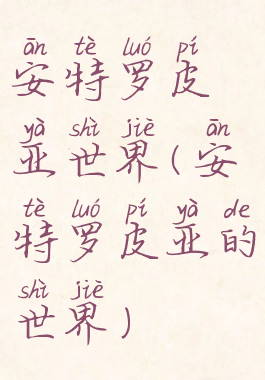 ān tè luó pí
安特罗皮
yà shì jiè ān
亚世界(安
tè luó pí yà de
特罗皮亚的
shì jiè
世界)